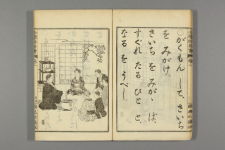 がくもん して、さいち
を みがけ。
さいち を みがゝば、
すぐれ たる ひと と
なる を うべし。